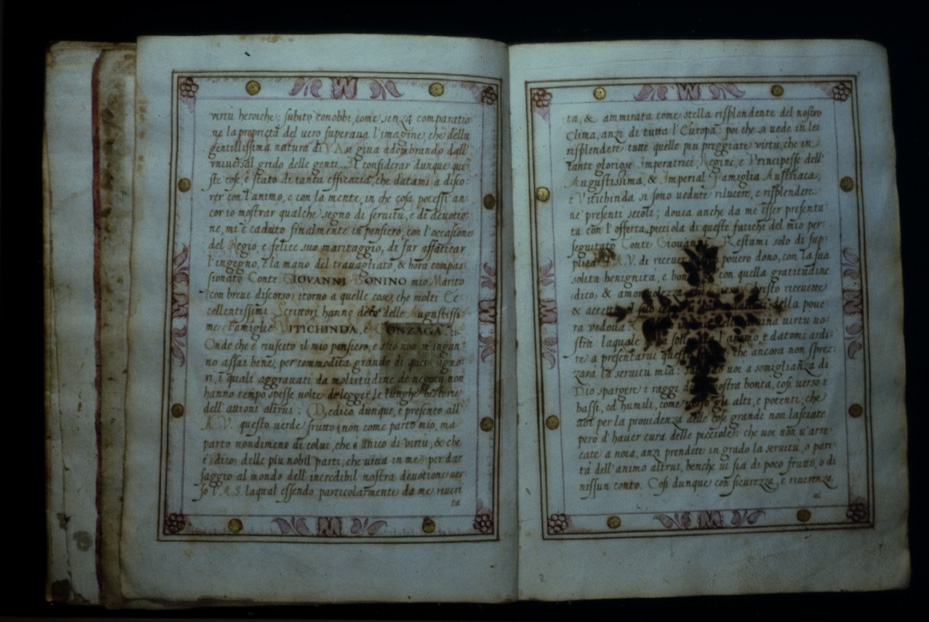 virtù heroiche; subito conobbi, come senza comparatio
ne la proprietà del vero superava l'imagine, che della
gentilissima natura di V. A. se giva adombrando dall'
universal grido delle genti. Il considerar dunque que-
ste cose è stato di tanta efficacia, che datami à disco-
rer con l'animo, e con la mente, in che cosa potessi an-
cor io mostrar qualche segno di servitù, e di devotio-
ne, mi è caduto finalmente in pensiero, con l'occasione
del Regio, e felice suo maritaggio, di far affaticar
l'ingegno, e la mano del travagliato, & hora compas-
sionato Conte GIOVANNI BONINO mio Marito
con breve discorso itorno a quelle cose, che molti Ec-
cellentissimi Scrittori hanno detto delle Augustissi-
me Famiglie VITICHINDA, e GONZAGA
Onde che è riuscito il mio pensiero, e s'io non m'ingan-
no assai bene, per commodità grande di quei signo-
ri, i quali aggravati da moltitudine de negotii non
hanno tempo spesse volte di legger le lunghe historie
dell'attioni altrui. Dedico dunque, e presento all'
A. V. questo verde frutto (non come parto mio, ma
parto nondimeno di colui, che è unico di virtù, & che
è, dico, delle più nobil parti, che viva in me) per dar
saggio al mondo dell'incredibil nostra devotione ver-
so l'A. S. laqual essendo particolarmente da me riveri
ta
ta, & ammirata come stella risplendente del nostro
Clima, anzi di tutta l'Europa; poi che si vede in lei
risplendere tutte quelle più preggiate virtù, che in
tante gloriose Imperatrici, Regine, e Principesse dell'
Augustissima, & Imperial Famiglia Austriaca,
e Vitichinda si sono vedute rilucere, e risplendere
ne' presenti secoli; dovea anche da me esser presenta-
ta con l'offerta piccola di queste fatiche del mio per-
seguitato Conte Giovanni. Restami solo di sup-
plicar V. di ricever povero dono, con la sua
solita benignità, e con quella gratitudine
dico, & christo ricevette
& accettò della pove
ra vedova una virtù no-
stra laquale animo, e datomi ardi-
re à presentarvi che ancora non spres-
zara la servitù mia: voi a somiglianza di
Dio spargete i raggi vostra bontà, così verso i
bassi, ed humili, come gli alti, e potenti; che
per la providenza delle cose grandi non lasciate
però d'haver cura delle picciole; che voi non v'are-
cate à noia, anzi prendete in grado la servitù, o pari-
tà dell'animo altrui, benche vi sia di poco frutto, o di
nissun conto. Così dunque con sicurezza, e riverenza